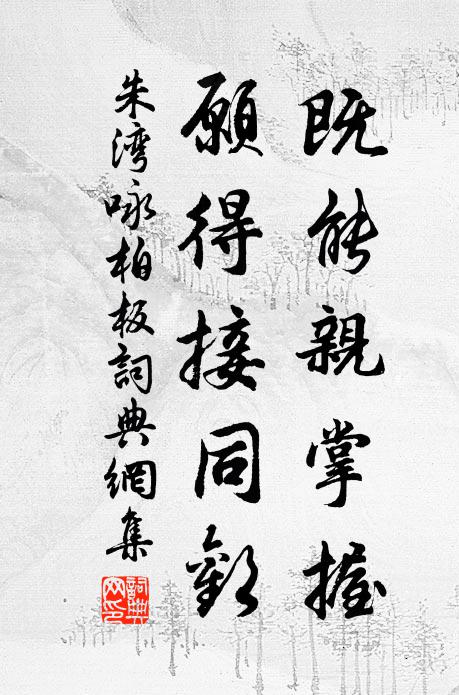 既能親掌握
願得接同歡
朱湾咏柏板詞典網集
詞典
网印